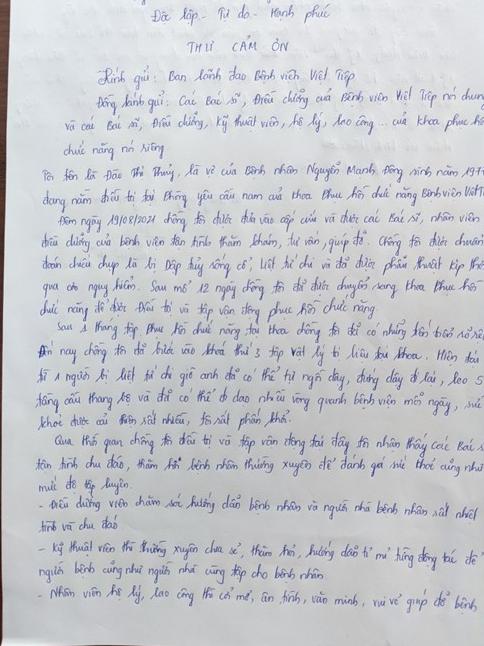 Độc lập - Tự do - Hạnh phúc
THƯ CẢM ƠN
Kính gửi: Ban lãnh đạo Bệnh viện Việt Tiệp
Đồng kính gửi: Các Bác sĩ, Điều dưỡng của Bệnh viện Việt Tiệp nói chung
và các Bác sĩ, Điều dưỡng, Kỹ thuật viên, hộ lý, lao công ... của khoa phục hồi
chức năng nói riêng
Tôi tên là Đào Thị Thủy, là vợ của Bệnh nhân Nguyễn Mạnh Đông sinh năm 197
đang nằm điều trị tại Phòng yêu cầu nam của khoa Phục hồi chức năng Bệnh viện Việt T
Đêm ngày 19/08/2021 chồng tôi được đưa vào cấp cứu và được các Bác sĩ, nhân viên
điều dưỡng của bệnh viện tận tình thăm khám, tư vấn, giúp đỡ. Chồng tôi được chuẩn
đoán chiếu chụp là bị Dập tủy sống cổ, Liệt tứ chi và đã được phẫu thuật kịp thời
qua cơn nguy hiểm. Sau mổ 12 ngày chồng tôi đã được chuyển sang khoa Phục hồi
chức năng để được Điều trị và tập vận động phục hồi chức năng.
Sau 1 tháng tập Phục hồi chức năng tại khoa chồng tôi đã có những tiến triển rõ rệt
Đến nay chồng tôi đã bước vào khoá thứ 3 tập vật lý trị liệu tại khoa. Hiện tại
từ 1 người bị liệt tứ chi giờ anh đã có thể tự ngồi dậy, đứng dậy đi lại, leo 5
tầng cầu thang bộ và đã có thể đi dạo nhiều vòng quanh bệnh viện mỗi ngày, sức
khoẻ được cải thiện rất nhiều, tôi rất phấn khởi.
Qua thời gian chồng tôi điều trị và tập vận động tại đây tôi nhận thấy các Bác s
tận tình chu đáo, thăm hỏi bệnh nhân thường xuyên để đánh giá sức khoẻ cũng như
mức độ tập luyện.
- Điều dưỡng viên chăm sóc hướng dẫn bệnh nhân và người nhà bệnh nhân rất nhiệt
tình và chu đáo
- Kỹ thuật viên thì thường xuyên chia sẻ, thăm hỏi, hướng dẫn tỉ mỉ từng động tác để
người bệnh cũng như người nhà cùng tập cho bệnh nhân
- Nhân viên hộ lý, lao công thì cởi mở, ân tình, văn minh, vui vẻ giúp đỡ bệnh